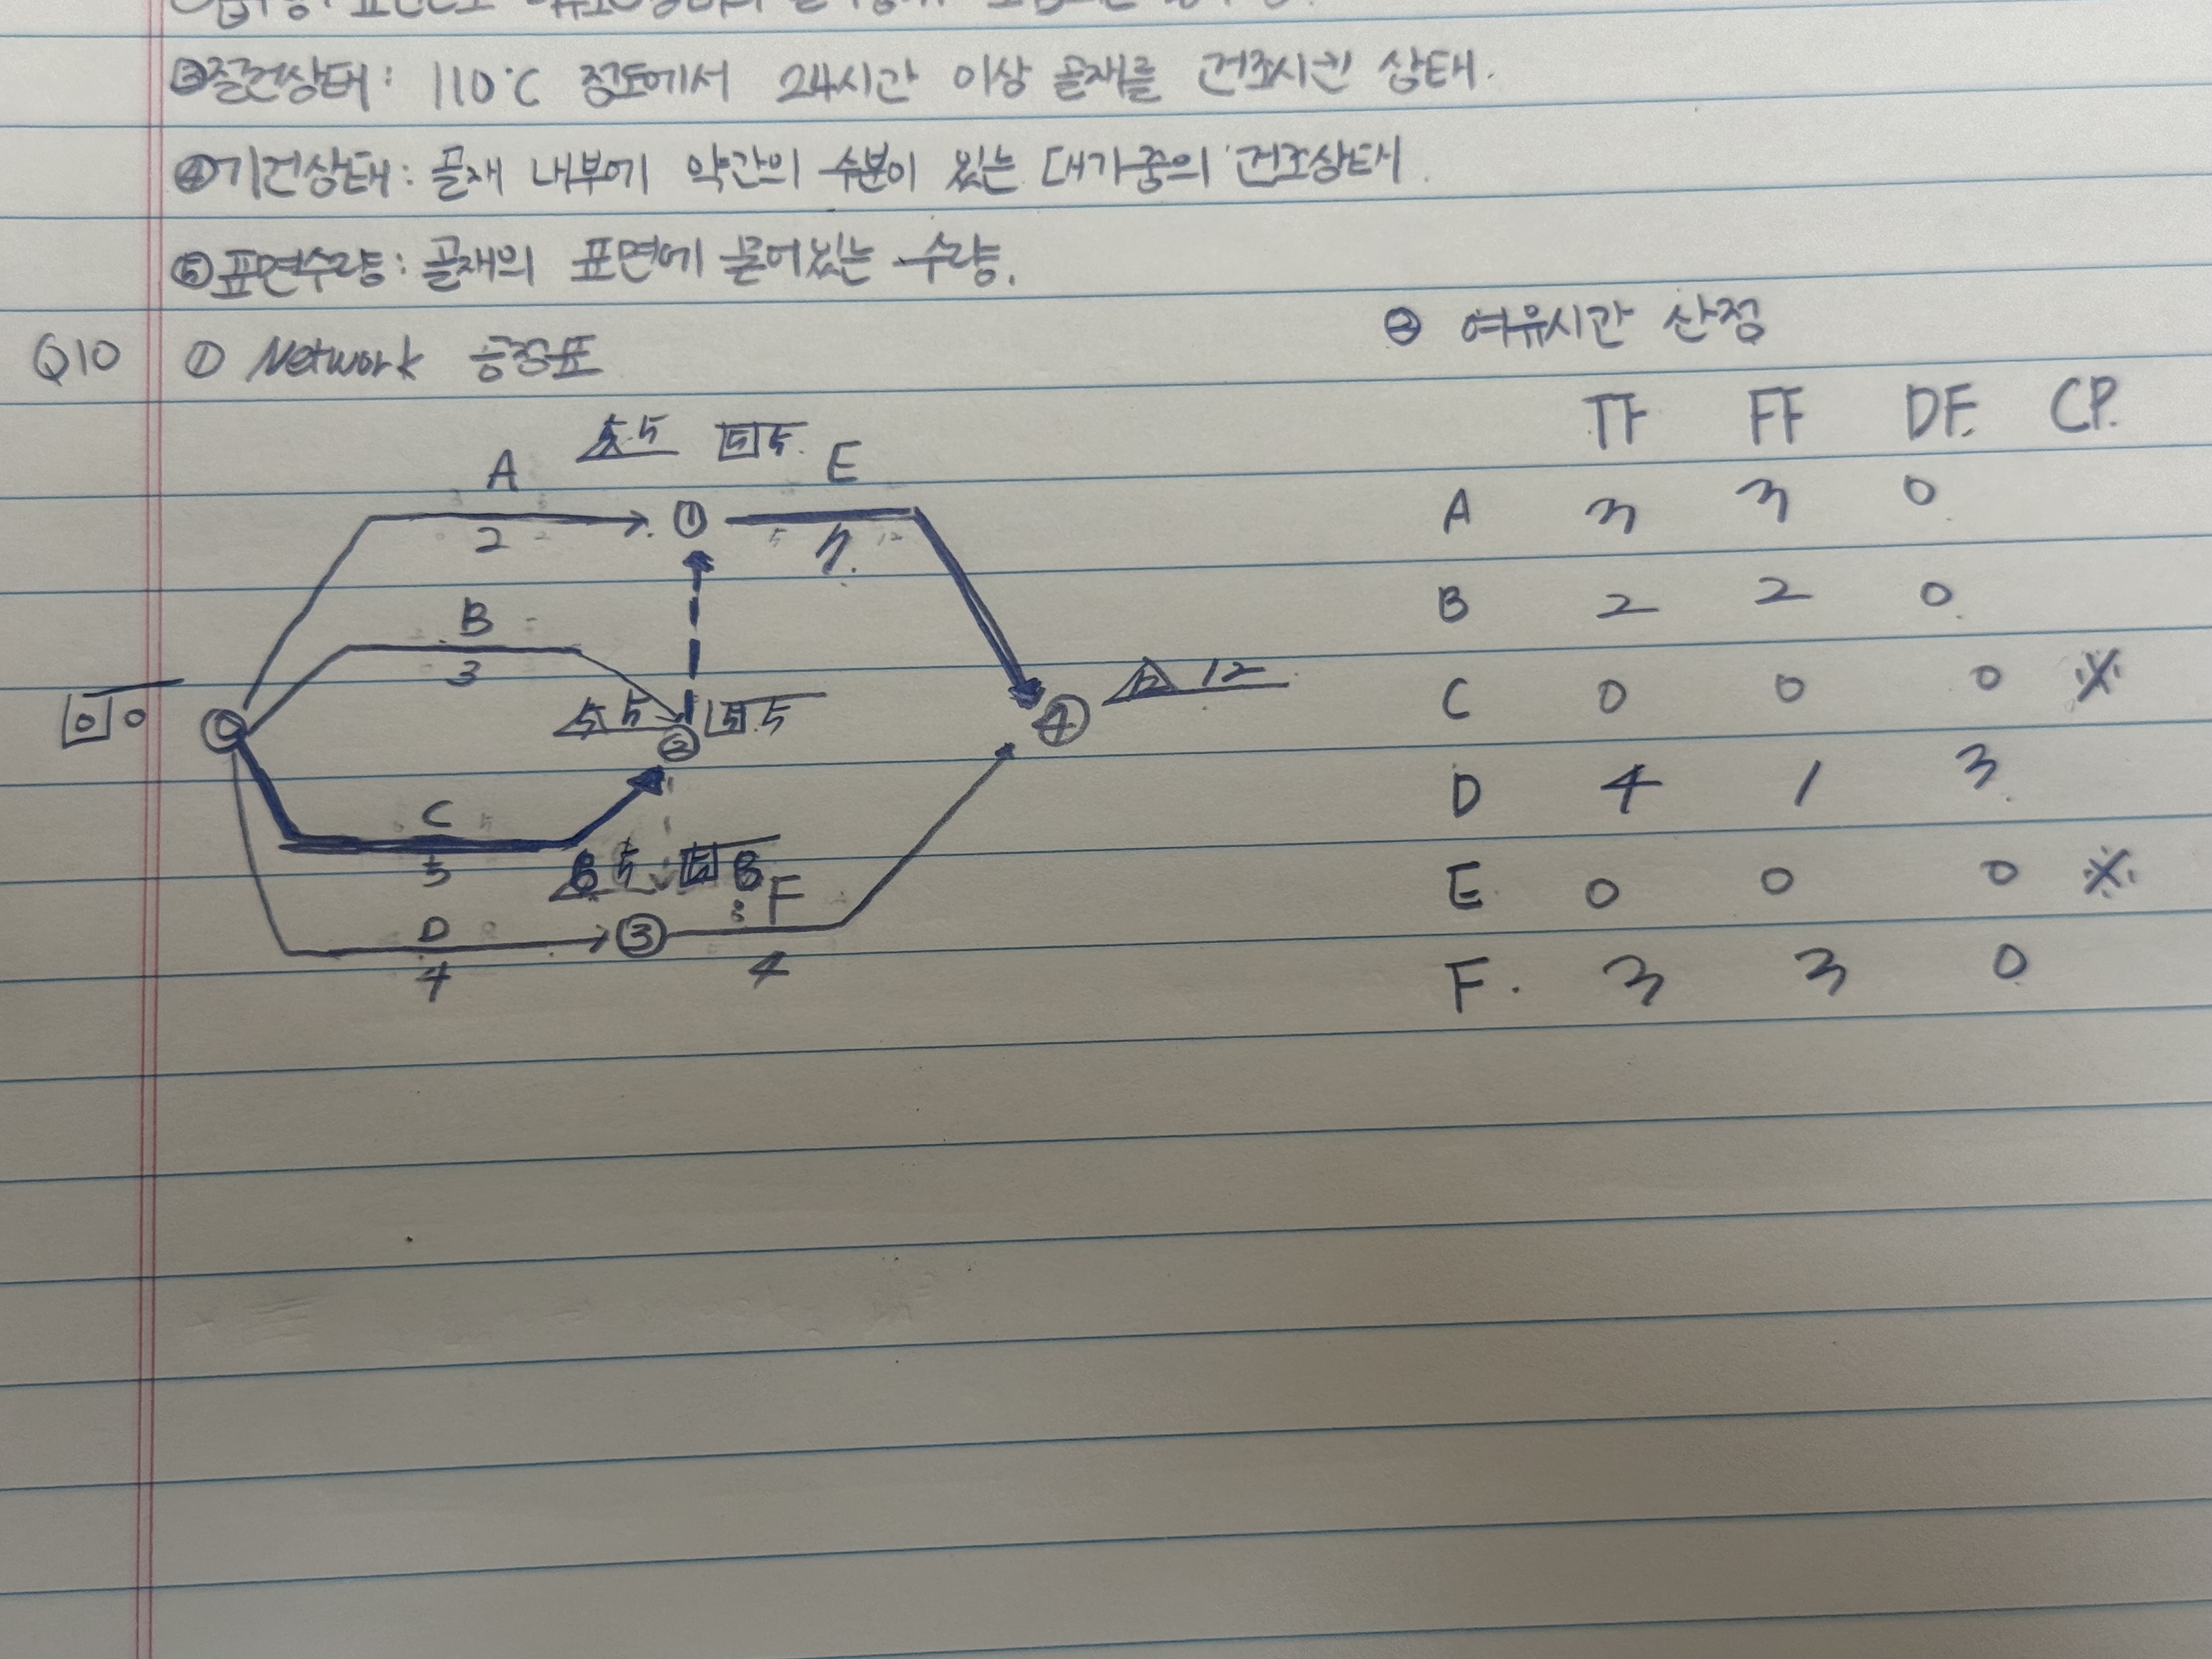 ③절건상태: 110℃ 정도에서 24시간 이상 골재를 건조시킨 상태.
④기건상태: 골재 내부에 약간의 수분이 있는 대기중의 건조상태.
⑤표면수량: 골재의 표면에 묻어있는 수량.
Q10 ① Network 공정표
② 여유시간 산정
TF FF DF. CP.
A 3 3 0
B 2 2 0.
C 0 0 0 ※
D 4 1 3.
E. 0 0 0 ※
F. 3 3 0
5 5 5 5.
A E
2 ① 7.
B
3
0 0 0 5 5 5 5 12 12
② ④
C
5
6 5 5 8
D ③ F
4 4